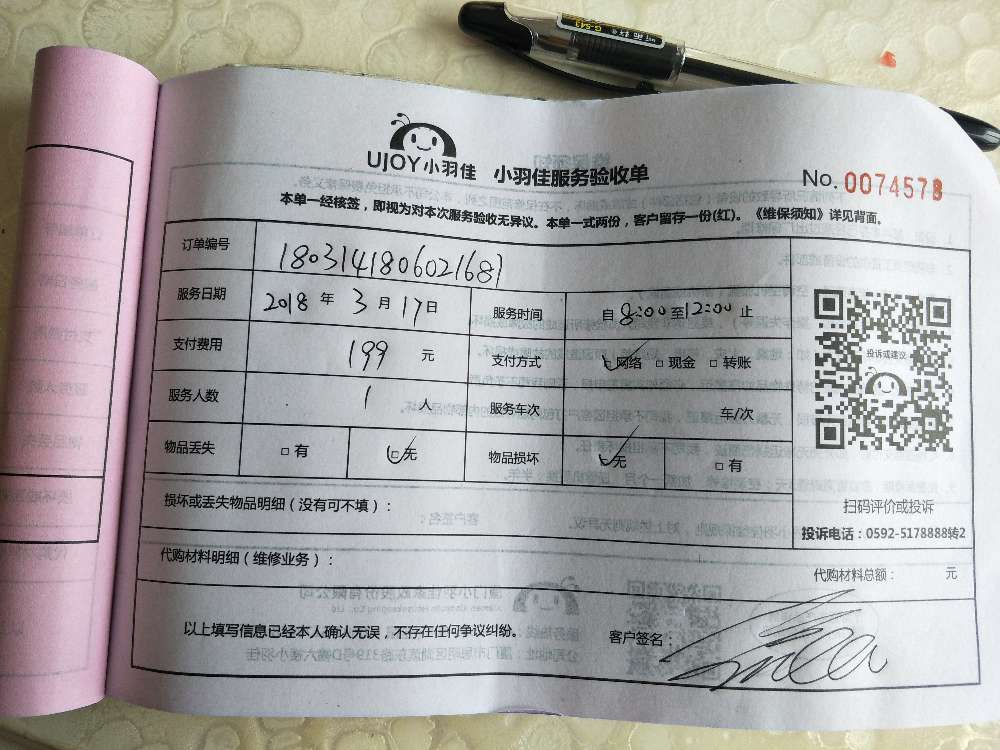 UJOY小羽佳 小羽佳服务验收单
No. 0074573
本单一经核签，即视为对本次服务验收无异议。本单一式两份，客户留存一份(红)。《维保须知》详见背面。
订单编号 1803141806021681
服务日期 2018 年 3 月 17 日 服务时间 自 8:00 至 12:00 止
支付费用 199 元 支付方式 网络 □ 现金 □ 转账
服务人数 1 人 服务车次 车/次
物品丢失 □ 有 □ 无 物品损坏 □ 无 □ 有
投诉或建议
扫码评价或投诉
投诉电话：0592-5178888转2
损坏或丢失物品明细（没有可不填）：
代购材料明细（维修业务）：
代购材料总额： 元
以上填写信息已经本人确认无误，不存在任何争议纠纷。 客户签名：